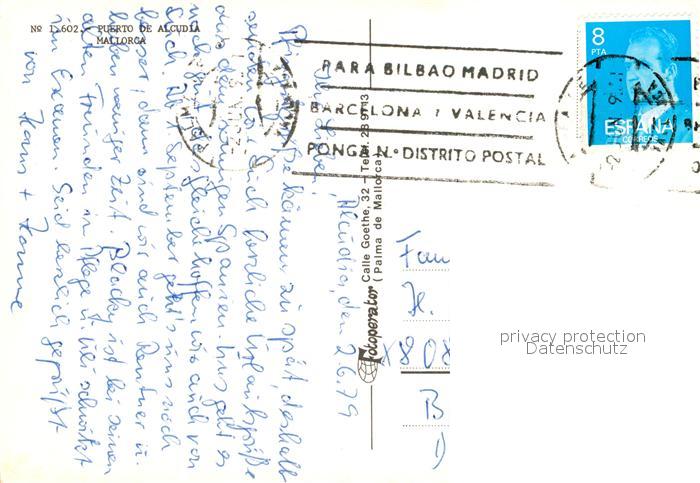 Nº 1.602. PUERTO DE ALCUDIA
MALLORCA
PARA BILBAO MADRID
BARCELONA Y VALENCIA
PONGA N.º DISTRITO POSTAL
8
PTA
ESPAÑA
CORREOS
Fotoperator Calle Goethe, 32
(Palma de Mallorca)
Alcúdia, den 2.6.79
Ihr Lieben,
Pfingstgrüße kämen zu spät, deshalb
senden wir Euch herzliche Urlaubsgrüße
aus dem sonnigen Spanien. Uns geht es
sehr gut, das gleiche hoffen wir auch von
Euch. Ab September geht's uns noch
besser, dann sind wir auch Rentner u.
haben weniger Zeit. Blacky ist bei seinen
alten Freunden in Pflege u. schwitzt
im Examen. Seid herzlich gegrüßt
von Hans + Hanne
Fam
H.
X808
B
D
privacy protection
Datenschutz